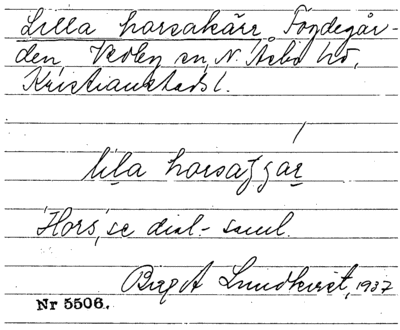 Lilla horsakärr Fögdegår-
den, Vedby sn, N. Åsbo hd,
Kristianstads l.
lila horsa
'Hors', se dial.-saml.
Birgit Lundkvist, 1937
Nr 5506.